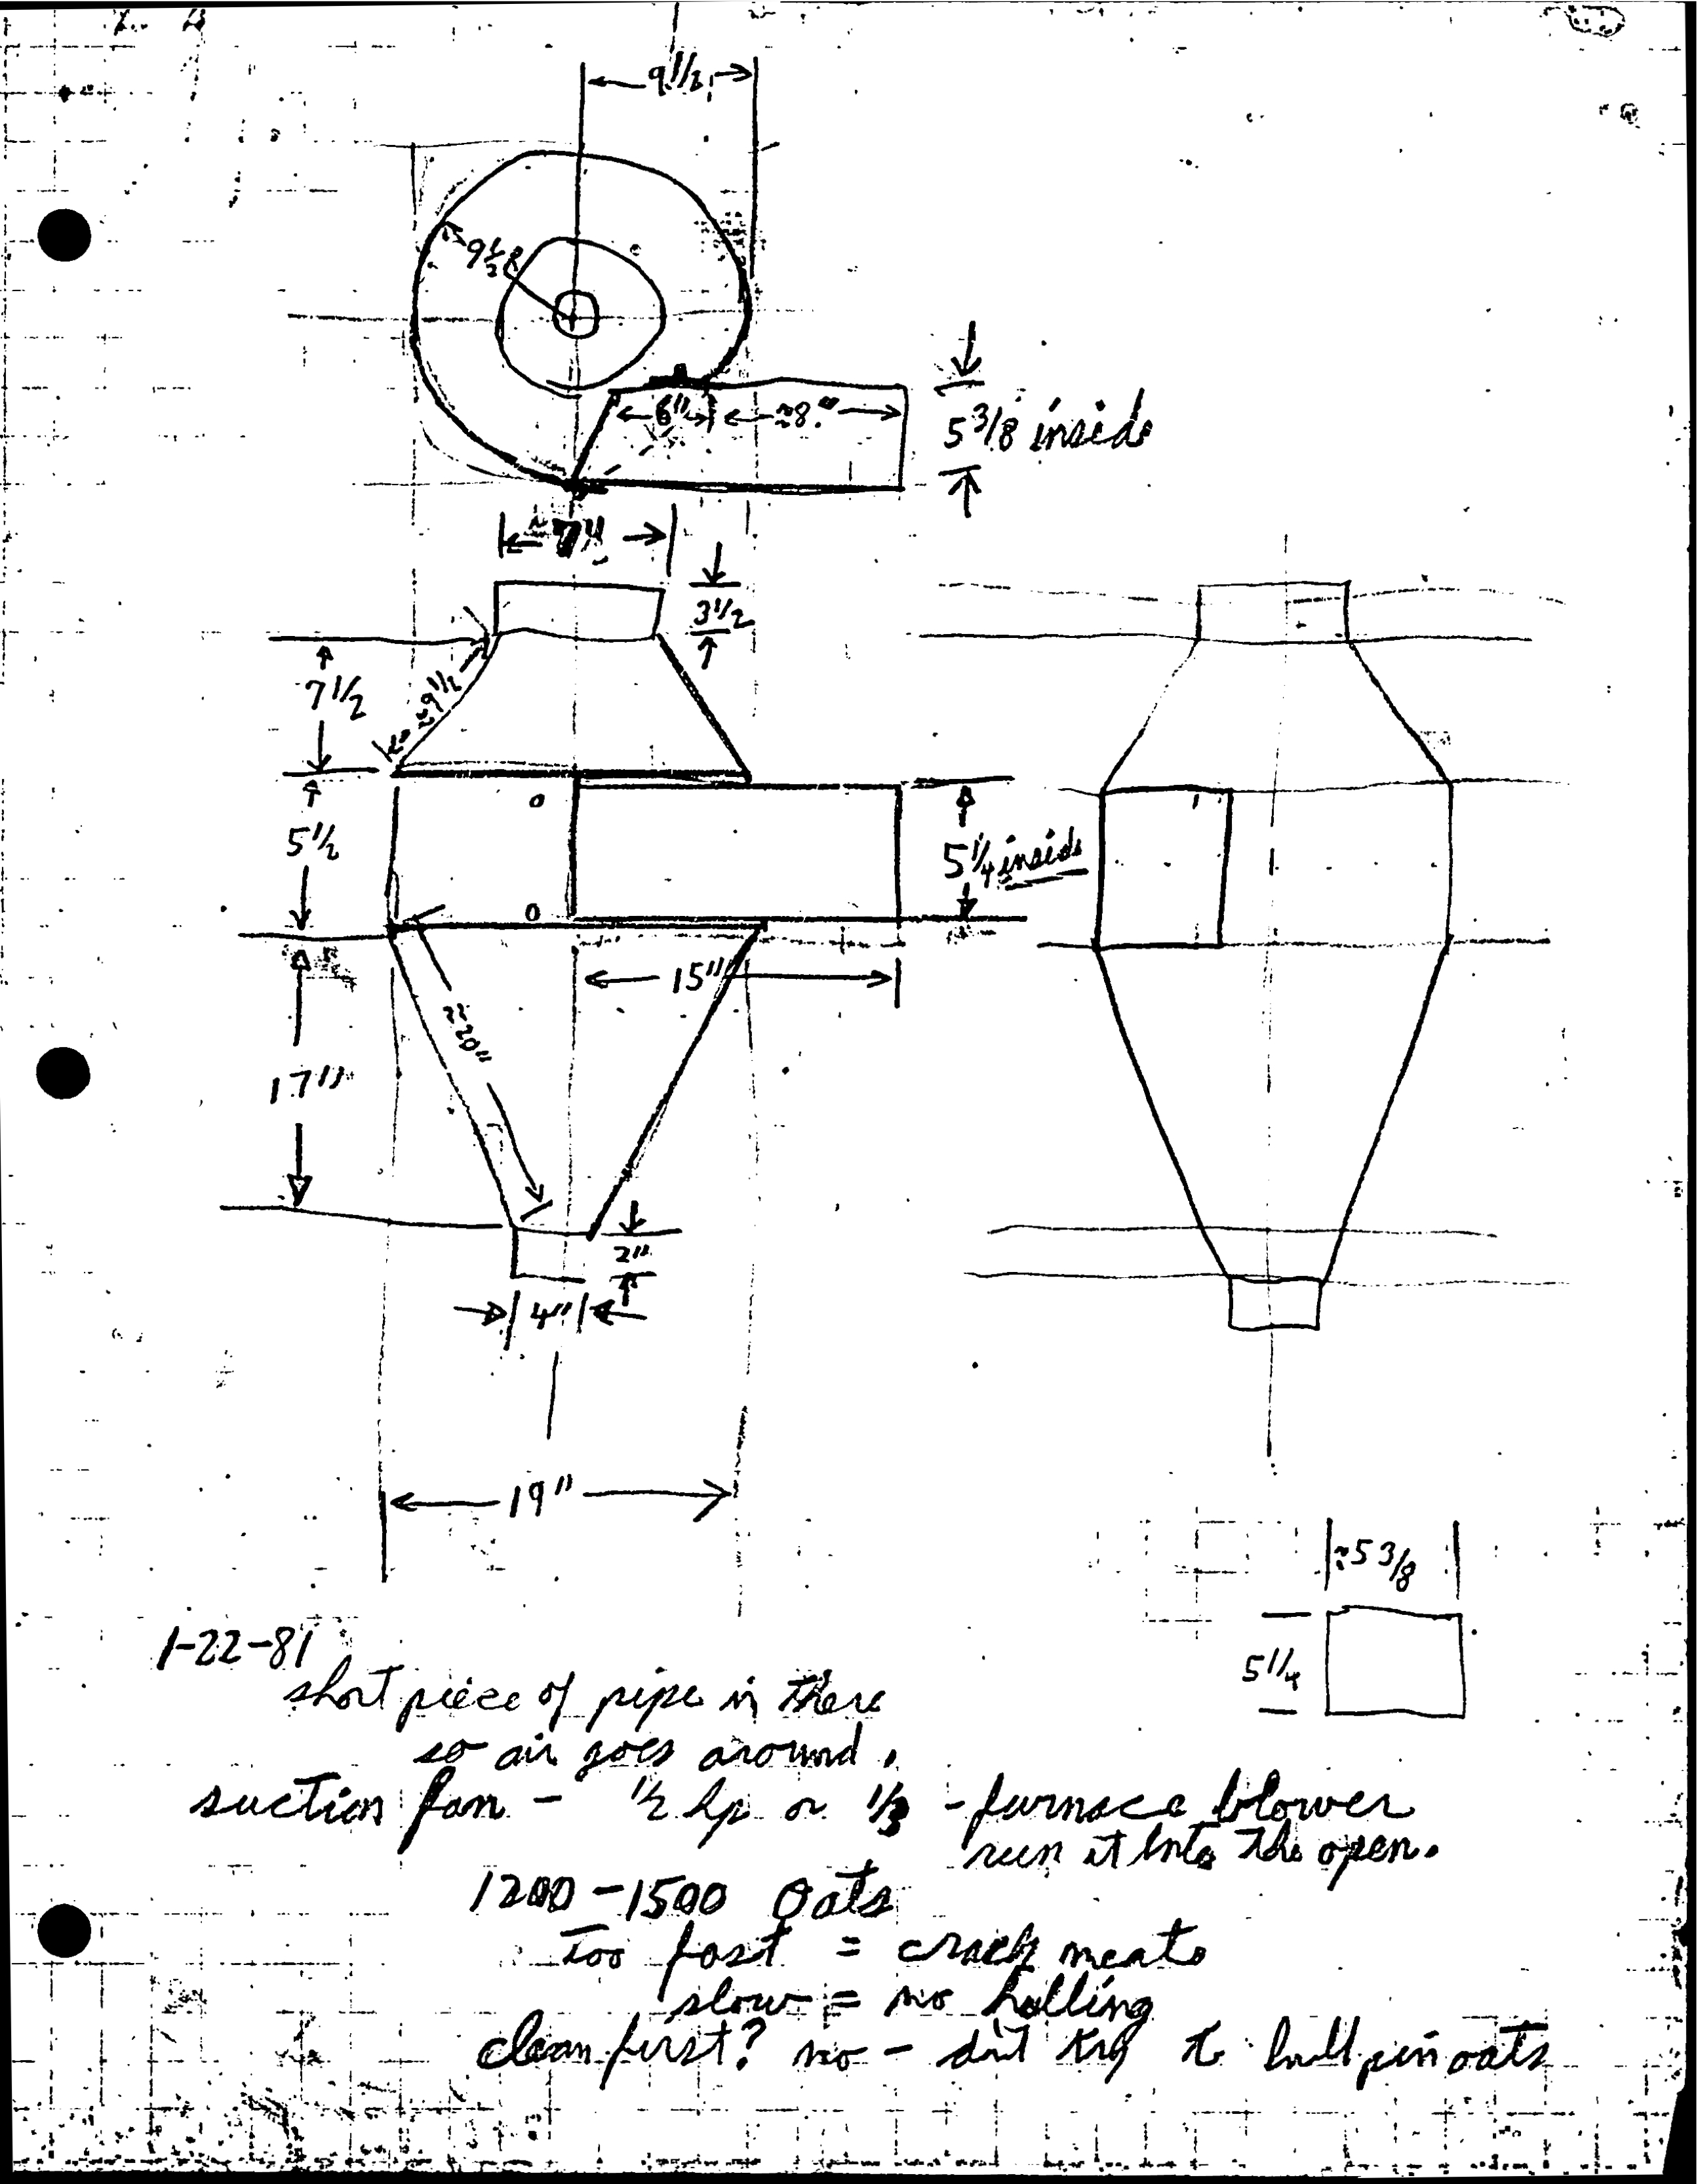 9 1/2
9 1/2 R
6" ≈8"
5 3/8 inside
≈7"
3 1/2
7 1/2
≈9 1/2
5 1/2
5 1/4 inside
15"
≈20"
17"
2"
4"
19"
≈5 3/8
5 1/4
1-22-81
short piece of pipe in there
so air goes around.
suction fan - 1/2 hp or 1/3 - furnace blower
run it into the open.
1200-1500 oats
Too fast = crack meats
slow = no hulling
clean first? no - don't try to hull pin oats